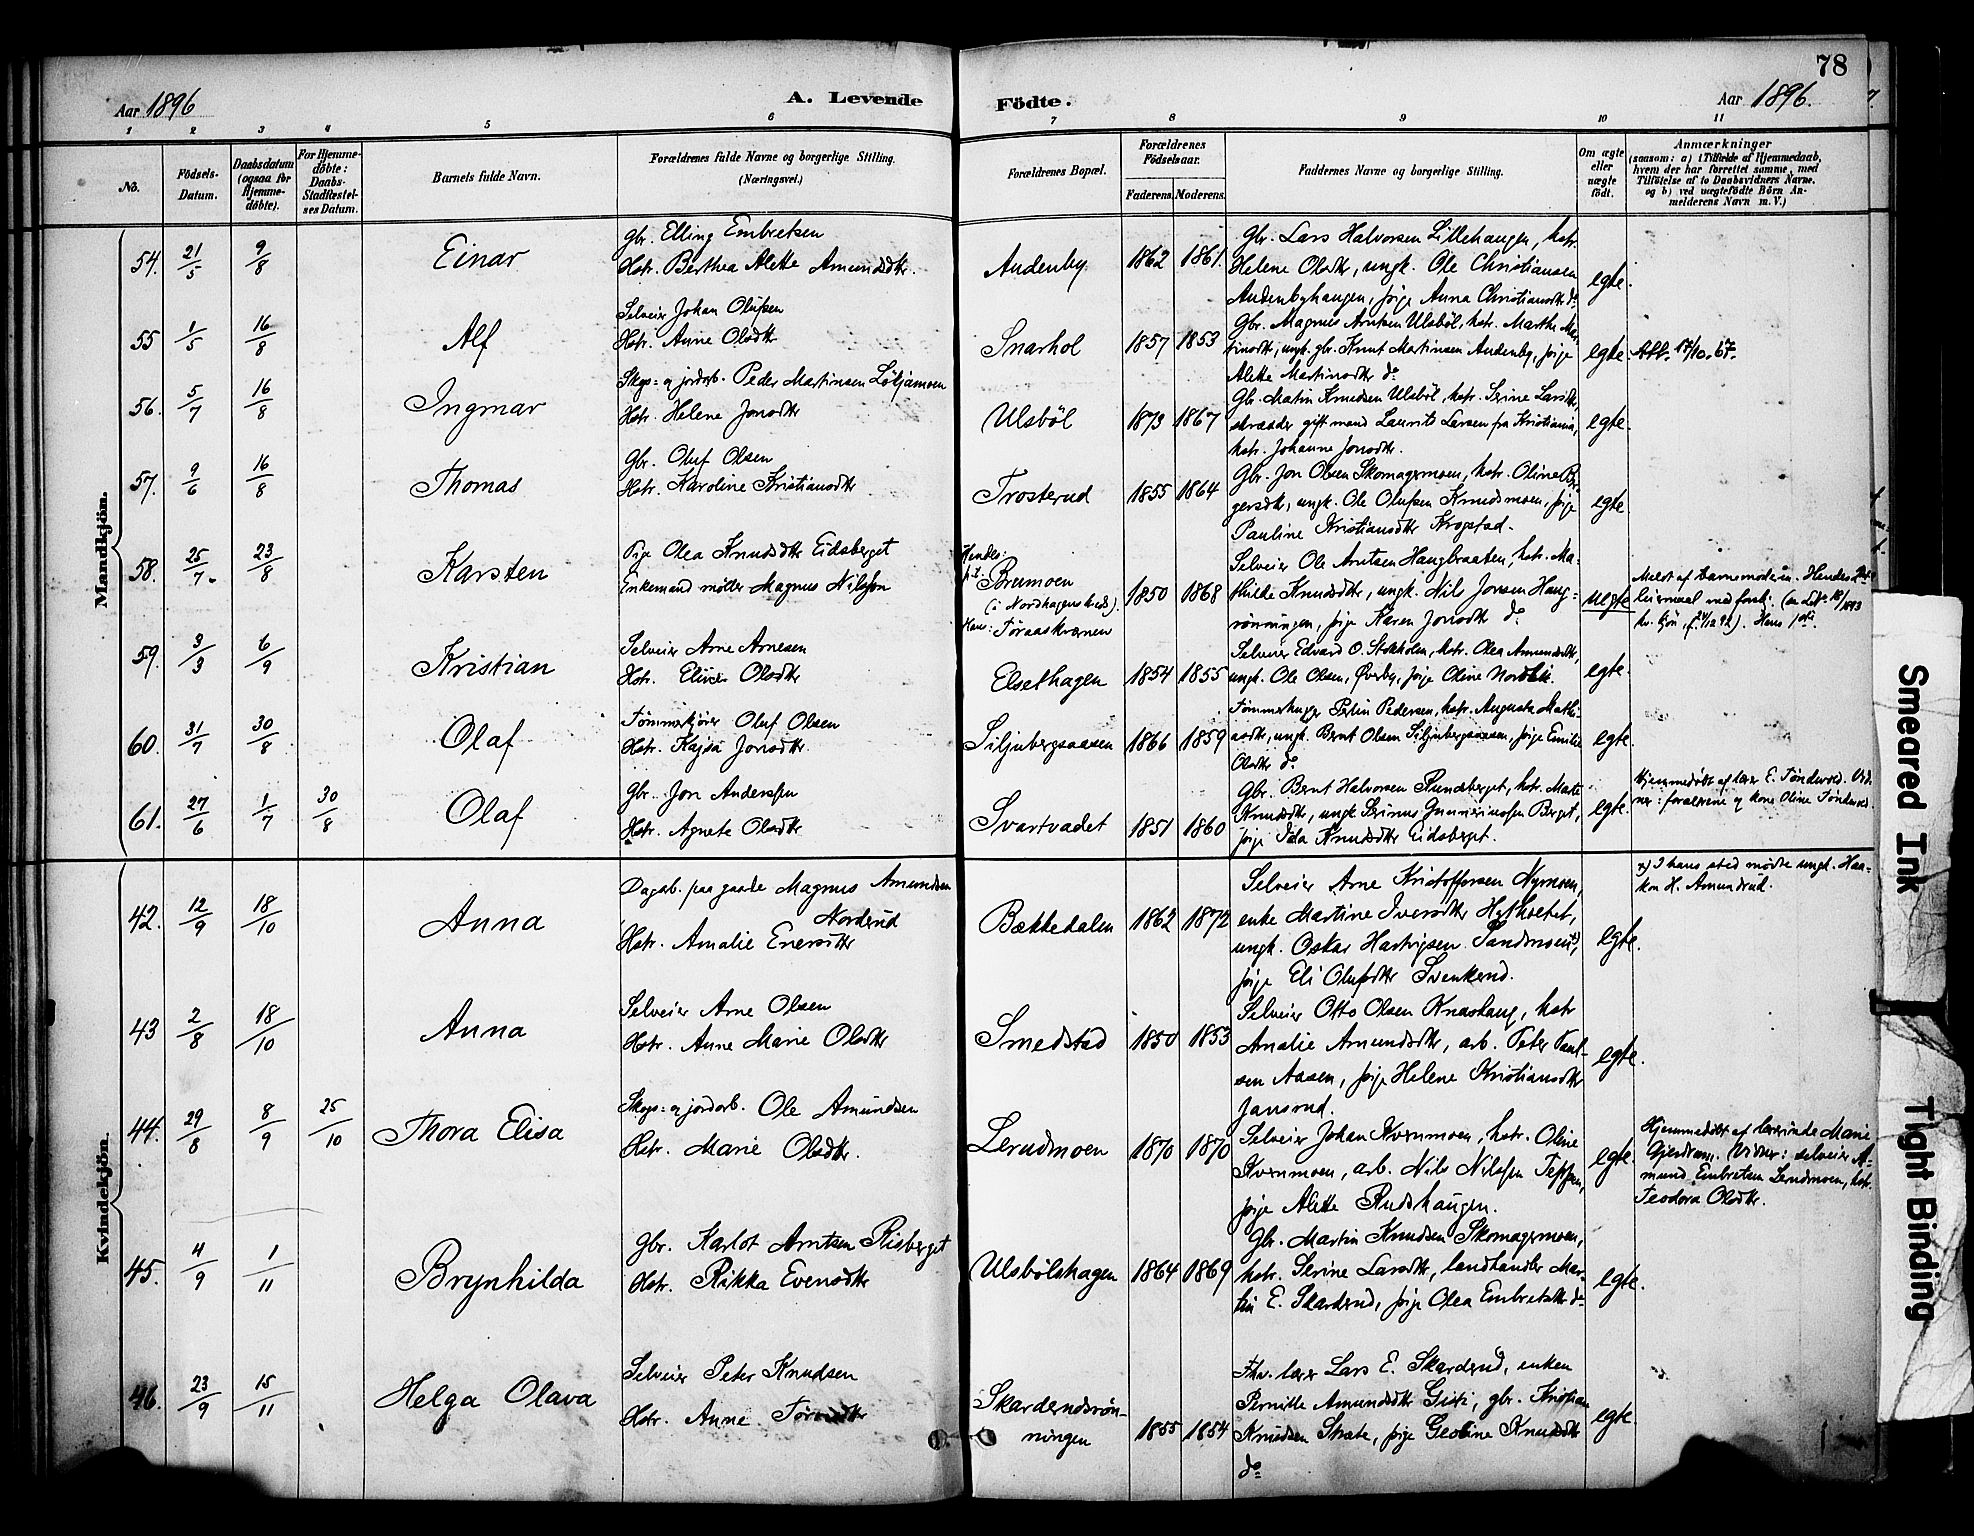 78
Aar 1896
A. Levende
Födte.
Aar 1896.
1 2 3 4 5 6 7 8 9 10 11
No.
Födsels-Datum.
Daabsdatum (ogsaa for Hjemme-döbte).
For Hjemme-döbte: Daabs-Stadfæstel-ses Datum.
Barnets fulde Navn.
Forældrenes fulde Navne og borgerlige Stilling.
(Næringsvei.)
Forældrenes Bopæl.
Forældrenes Födselsaar.
Faderens. Moderens.
Faddernes Navne og borgerlige Stilling.
Om ægte eller uægte födt.
Anmærkninger
(saasom: a) i Tilfælde af Hjemmedaab,
hvem der har forrettet samme, med
Tilföielse af to Daabsvidners Navne,
og b) ved uægtefödte Börn An-
melderens Navn m. V.)
Mandkjön.
54. 21/5 9/8 Einar
Gbr. Elling Embretsen
Hstr. Berthea Alette Amundsdtr.
Audenby 1862 1861.
Gbr. Lars Halvorsen Lillehaugen, hstr.
Helene Olsdtr, ungk. Ole Christiansen
Audenbyhaugen, pige Anna Christiansdtr do
egte.
55 1/5 16/8 Alf
Selveier Johan Olufsen
Hstr. Anne Olsdtr
Snarhol 1857 1853
Gbr. Magnus Arntsen Ulsböl, hstr. Marthe Mar-
tinsdtr, ungk. gbr. Knut Martinsen Audenby, pige
Alette Martinsdtr do
egte. Att. 17/10-67.
56. 5/7 16/8 Ingmar
Skogs= og jordarb. Peder Martinsen Löljamoen
Hstr. Helene Jonsdtr
Ulsböl 1873 1867
Gbr. Martin Knudsen Ulsböl, hstr. Serine Larsdtr,
skrædder gift mand Laurits Larsen fra Kristiania,
hstr. Johanne Jonsdtr.
egte.
57. 9/6 16/8 Thomas
Gbr. Oluf Olsen
Hstr. Karoline Kristiansdtr
Trosterud 1855 1864
Gbr. Jon Olsen Skomagermoen, hstr. Oline Bir-
gersdtr, ungk. Ole Olufsen Knudsmoen, pige
Pauline Kristiansdtr Krogstad.
egte.
58. 25/7. 23/8 Karsten
Pige Olea Knudsdtr Eidsberget
Enkemand møller Magnus Nilssøn
Hendes:
p.t. Bremoen
(i Nordhagens kreds).
Hans: Töraaskvernen
1850 1868
Selveier Ole Arntsen Haugbraaten, hstr. Ma-
thilde Knudsdtr, ungk. Nils Jonsen Haug=
rönningen, pige Karen Jonsdtr do
uegte
Meldt af barnemoderen. Hendes 2det
leiermaal
59. 3/3 6/9 Kristian
Selveier Arne Arnesen
Hstr. Eline Olsdtr
Elsethagen 1854 1855
Selveier Edvard O. Stokholm, hstr. Olea Amundsdtr,
ungk. Ole Olsen, Øverby, pige Oline Nordli.
egte.
60. 31/7 30/8 Olaf
Tømmerkjører Oluf Olsen
Hstr. Kajsa Jonsdtr
Siljubergsaasen 1866 1859
Tømmerhugger Petrin Pedersen, hstr. Augusta Mathi-
asdtr, ungk. Bernt Olsen Siljubergsaasen, pige Emilie
Olsdtr do
egte.
61. 27/6 1/7 30/8 Olaf
Gbr. Jon Anderssen
Hstr. Agnete Olsdtr
Svartvadet 1851 1860
Gbr. Bernt Halvorsen Rundberget, hstr. Mate
Knudsdtr, ungk Serinus Gunneriussen Berget,
pige Ida Knudsdtr Eidsberget.
egte.
Hjemmedöbt af lærer E. Tönderud. Vid-
ner: forældrene og kone Oline Tönderud.
Kvindekjön.
42. 12/9 18/10 Anna
Dagarb. paa gaarde Magnus Amundsen
Norderud
Hstr. Amalie Enersdtr
Bækkedalen 1862 1872
Selveier Arne Kristoffersen Nymoen,
enke Martine Iversdtr Hythoetet,
ungk. Oskar Hartvigsen Sandmoen x),
pige Eli Olufsdtr Svenkerud.
egte.
x) I hans sted mödte ungk. Haa-
kon H. Amundrud.
43 2/8 18/10 Anna
Selveier Arne Olsen
Hstr. Anne Marie Olsdtr
Smedstad 1850 1853
Selveier Otto Olsen Knashaug, hstr
Amalie Amundsdtr, arb. Peter Paul-
sen Aasen, pige Helene Kristiansdtr
Jansrud.
egte.
44. 29/8 8/9 25/10 Thora Elisa
Skogs= og jordarb. Ole Amundsen
Hstr. Marie Olsdtr.
Lerudmoen 1870 1870
Selveier Johan Kvernmoen, hstr. Oline
Kvernmoen, arb. Nils Nilssen Teppen,
pige Alette Rudshaugen.
egte.
Hjemmedöbt af lærerinde Marie
Gjerdrum. Vidner: selveier A-
mund Embretsen Lerudmoen, hstr.
Teodora Olsdtr.
45. 4/9 1/11 Brynhilda
Gbr. Karlot Arntsen Risberget
Hstr. Rikka Evensdtr
Ulsbölshagen 1864 1869
Gbr. Martin Knudsen Skomagermoen,
hstr. Serine Larsdtr, landhandler Mar-
tin E. Skarderud, pige Olea Embretsdtr do
egte.
46. 23/9 15/11 Helga Olava
Selveier Peter Knudsen
Hstr. Anne
Skarderudsrön-
ningen 1855 1854
Fhv. lærer Lars E. Skarderud, enken
Pernille Amundsdtr Gisti, gbr. Kristian
Knudsen Skate, pige Geoline Knudsdtr
do
egte.
Smeared Ink
Tight Binding